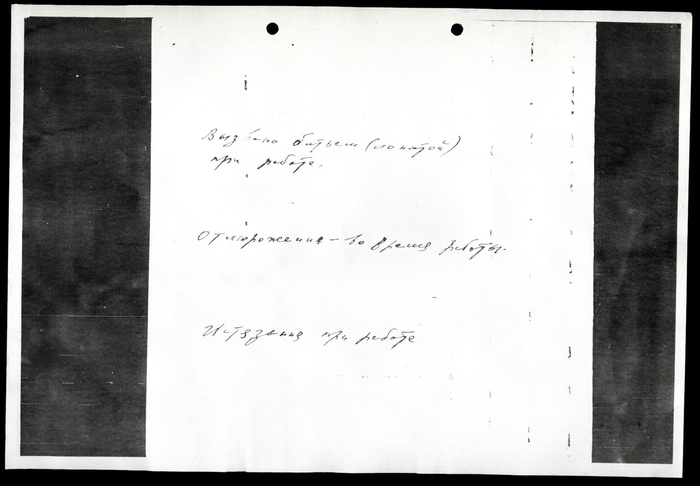 Вызвано битьем (лопатой)
при работе.
Отморожения – во время работы.
Истязания при работе